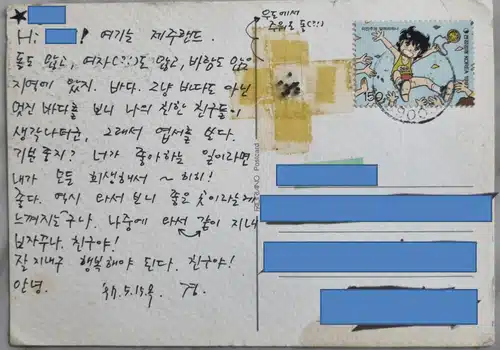 Hi! 여기는 제주랜드.
돌도 많고, 여자(?!)도 많고, 바람도 많은
지역이 있지. 바다. 그냥 바다도 아닌
멋진 바다를 보니 나의 진한 친구들이
생각나더군, 그래서 엽서를 쓴다.
기분 좋지? 너가 좋아하는 일이라면
내가 모든 희생해서 ~ 히히!
좋다. 역시 와서 보니 좋은 곳이라는게
느껴지는구나. 나중에 와서 같이 지내
보자꾸나. 친구야!
잘 지내구 행복해야 된다. 친구야!
안녕. 97.5.15.목. 경.
우도에서
주워온 돌(?!)
150
KOREA
Postcard